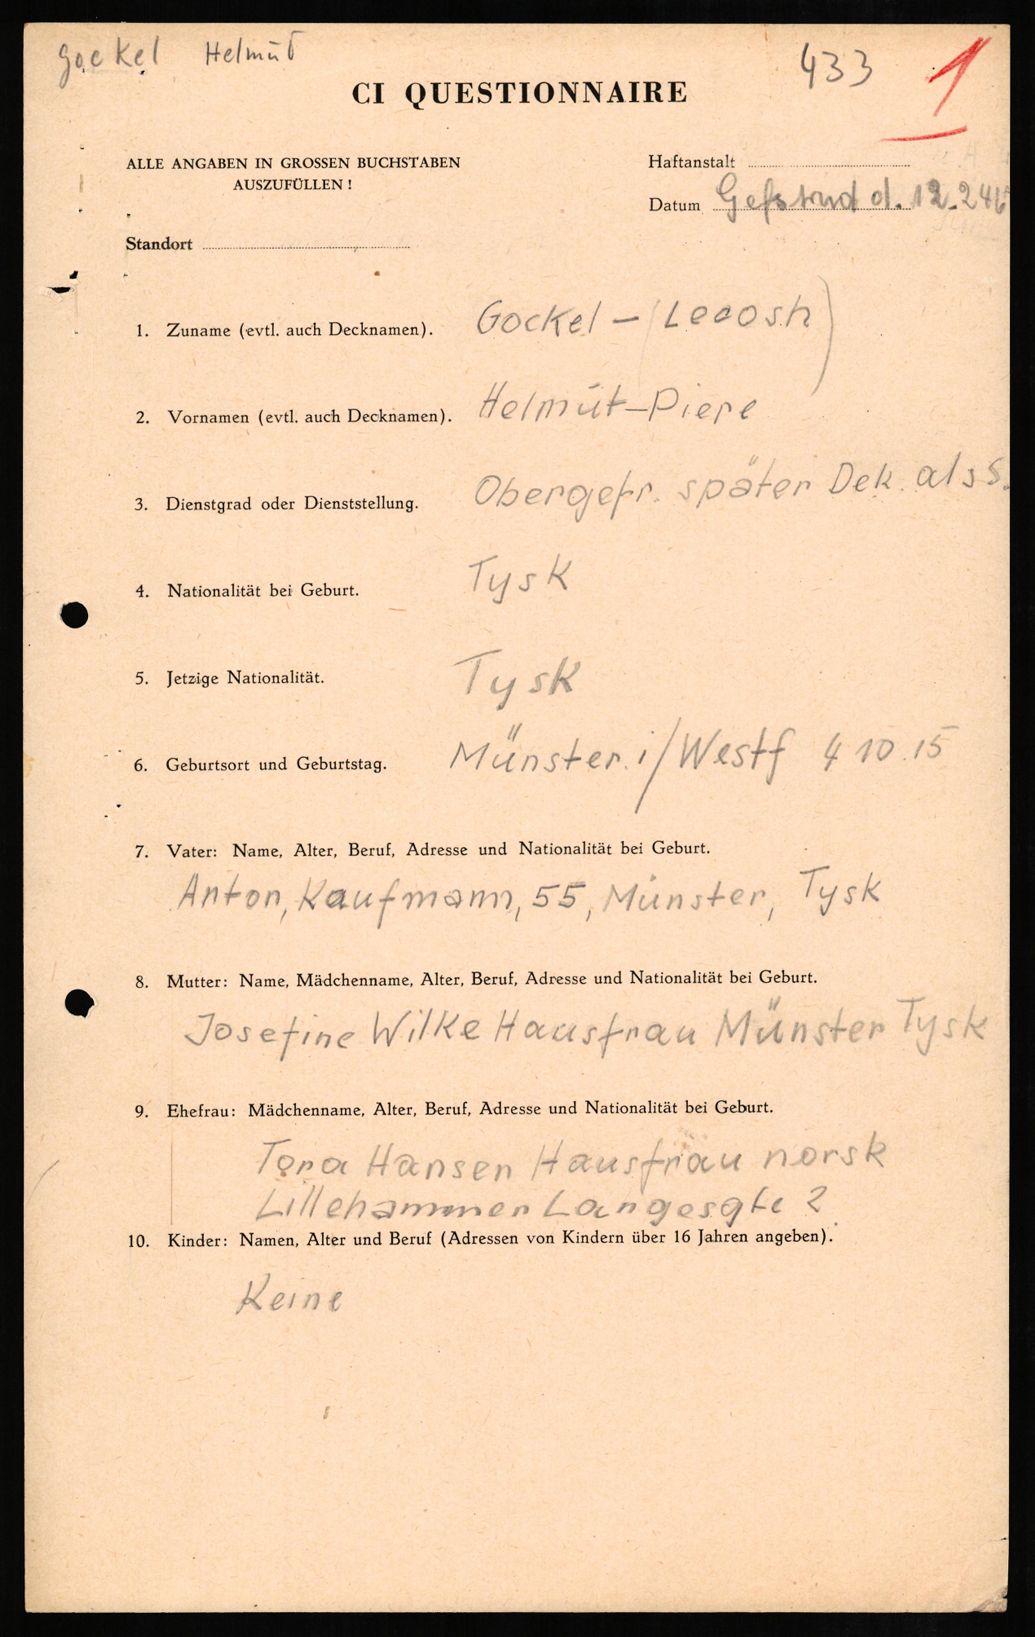 Gockel Helmut
433
1
CI QUESTIONNAIRE
ALLE ANGABEN IN GROSSEN BUCHSTABEN
AUSZUFÜLLEN !
Haftanstalt
Datum d. 12.2 46
Standort
1. Zuname (evtl. auch Decknamen). Gockel – (Lecosh)
2. Vornamen (evtl. auch Decknamen). Helmut–Piere
3. Dienstgrad oder Dienststellung. Obergefr. später Dek. als S.
4. Nationalität bei Geburt. Tysk
5. Jetzige Nationalität. Tysk
6. Geburtsort und Geburtstag. Münster i/Westf 4 10.15
7. Vater: Name, Alter, Beruf, Adresse und Nationalität bei Geburt.
Anton, Kaufmann, 55, Münster, Tysk
8. Mutter: Name, Mädchenname, Alter, Beruf, Adresse und Nationalität bei Geburt.
Josefine Wilke Hausfrau Münster Tysk
9. Ehefrau: Mädchenname, Alter, Beruf, Adresse und Nationalität bei Geburt.
Tora Hansen Hausfrau norsk
Lillehammer Langesgte 2
10. Kinder: Namen, Alter und Beruf (Adressen von Kindern über 16 Jahren angeben).
Keine